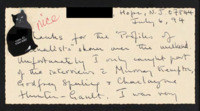 nice
Hope, N.J. 07844
July 6, '94
Thanks for the Profiles of
Journalists shown over the weekend
Unfortunately I only caught part
of the interviews & Murray Kempton,
Godfrey Sperling & Charlayne
Hunter-Gault. I was very